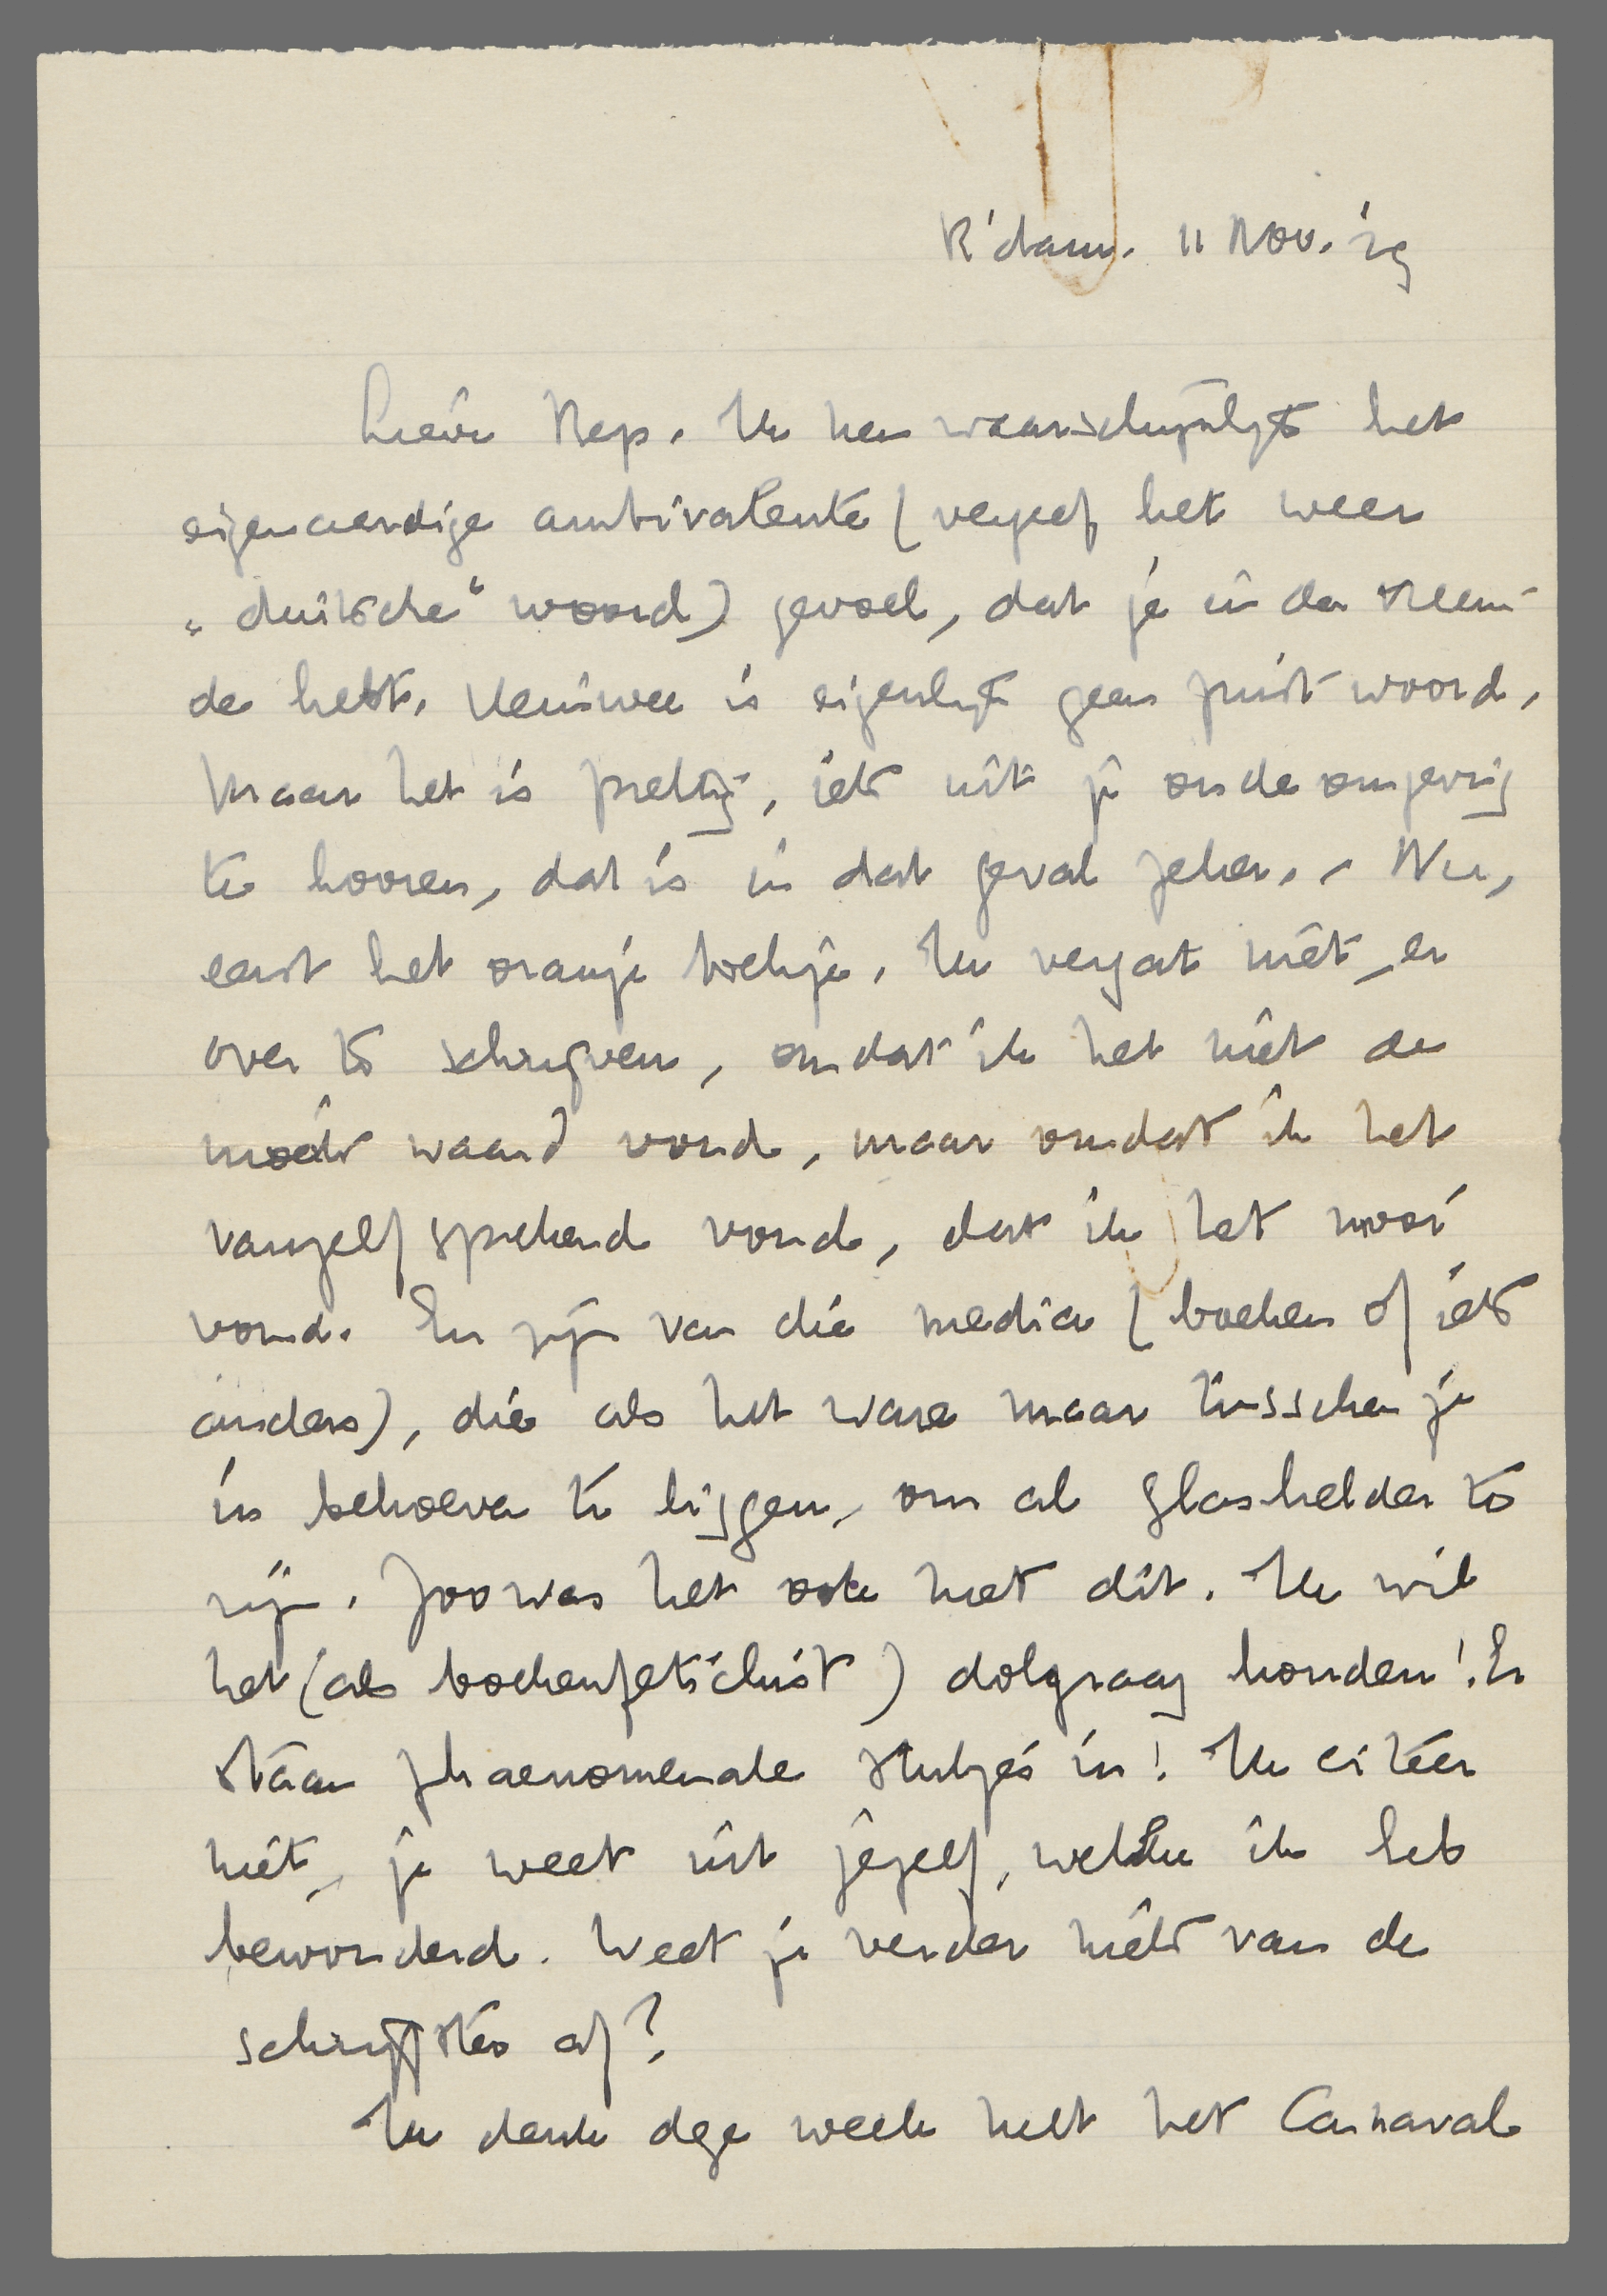 R'dam. 11 Nov. '29
Lieve Nep. Ik ken waarschijnlijk het
eigenaardige ambivalente (vergeef het weer
„duitsche" woord) gevoel, dat je in den vreem-
de hebt. Heimwee is eigenlijk geen juist woord.
Maar het is prettig, iets uit je oude omgeving
te hooren, dat is in dat geval zeker. - Nu,
eerst het oranje boekje. Ik vergat niet, er
over te schrijven, omdat ik het niet de
moeite waard vond, maar omdat ik het
vanzelfsprekend vond, dat ik het mooi
vond. Er zijn van die media (boeken of iets
anders), die als het ware maar tusschen je
in behoeven te liggen, om al glashelder te
zijn. Zoo was het ook met dit. Ik wil
het (als boekenfetichist) dolgraag houden! Er
staan phaenomenale stukjes in! Ik citeer
niet, je weet uit jezelf, welke ik heb
bewonderd. Weet je verder niets van de
schrijfster af?
Ik denk deze week met het Carnaval